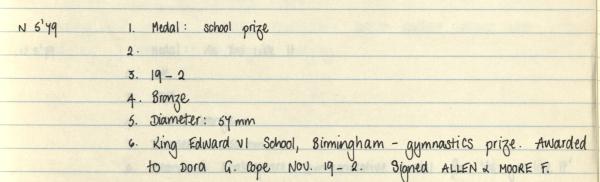 N 5'49 1. Medal: school prize
2.
3. 19-2
4. Bronze
5. Diameter: 57 mm
6. King Edward VI School, Birmingham - gymnastics prize. Awarded
to Dora G. Cope Nov. 19-2. Signed ALLEN & MOORE F.